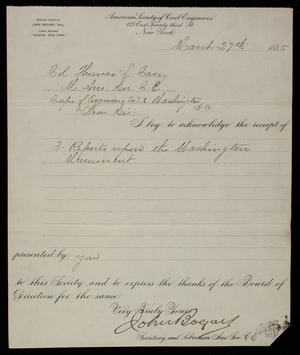 American Society of Civil Engineers
127 East Twenty-third St.
New York
JOHN BOGART,
March 27th 1885
Col. Thomas L Casey
M. Am Soc C. E.
Corps of Engineers U.S.A. Washington
D.C.
Dear Sir:
I beg to acknowledge the receipt of
3 - Reports upon the Washington
Monument
presented by you
to this Society and to express the thanks of the Board of
Direction for the same.
Very Truly Yours
John Bogart
Secretary and Librarian Am. Soc. C. E.